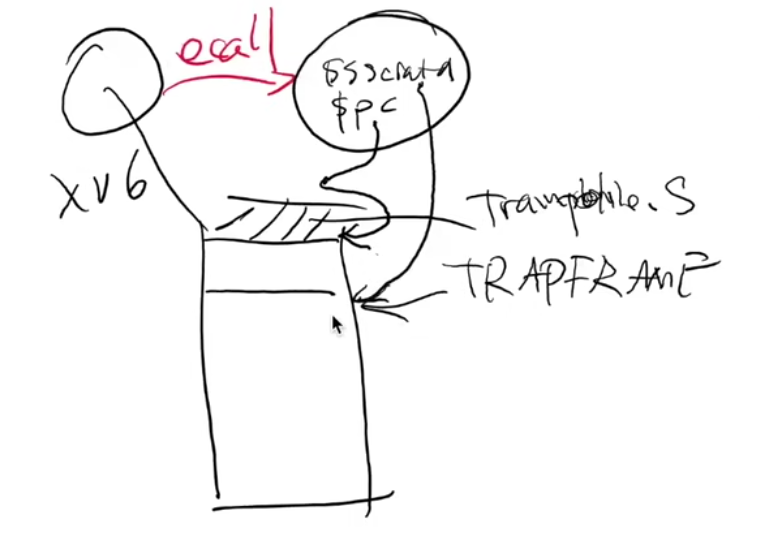 ecall
$sscratch
$pc
xv6
Trampoline.S
TRAPFRAME